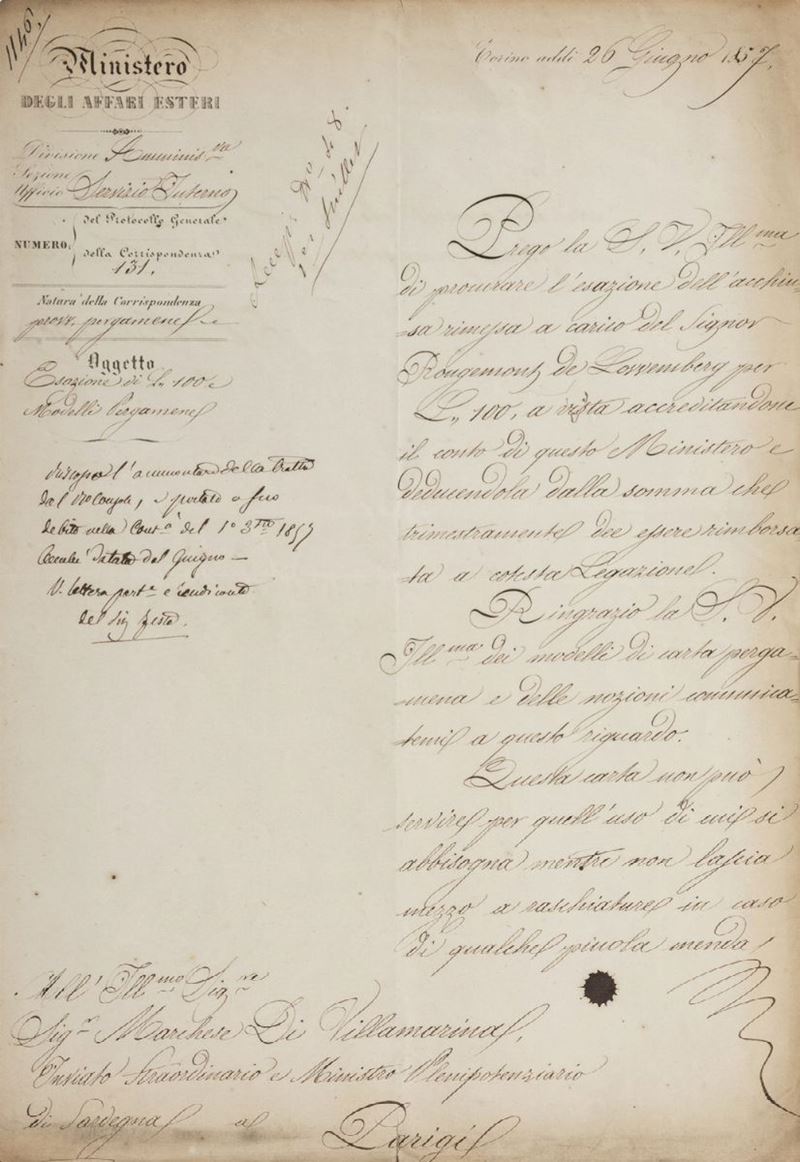 1146.
Ministero
DEGLI AFFARI ESTERI
Divisione Amminis.va
Sezione
Ufficio Servizio Interno
NUMERO.
del Protocollo Generale
della Corrispondenza
131.
Natura della Corrispondenza
pergamene
Oggetto
Esazione di L. 100 e
Modelli Pergamene
l'ammontare della tratta
dal
debito nella Cont.a del 1° 3.tre 1857
del Giugno —
V. lettera e rendiconto
del Sig
Torino addì 26 Giugno 1857.
Prego la S. V. Ill.ma
di procurare l'esazione dell'acchiu=
=sa rimessa a carico del Signor
Rougemont de Lowemberg per
L. 100, a vista accreditandone
il conto di questo Ministero e
deducendola dalla somma che
trimestralmente dee essere rimborsa
ta a cotesta Legazione.
Ringrazio la S. V.
Ill.ma dei modelli di carta perga=
=mena e delle nozioni comunica=
temi a questo riguardo.
Questa carta non può
servire per quell'uso di cui si
abbisogna mentre non lascia
mezzo a raschiature in caso
di qualche picciola menda,
All' Ill.mo Sig.re
Sig.r Marchese Di Villamarina,
Inviato Straordinario e Ministro Plenipotenziario
di Sardegna a
Parigi